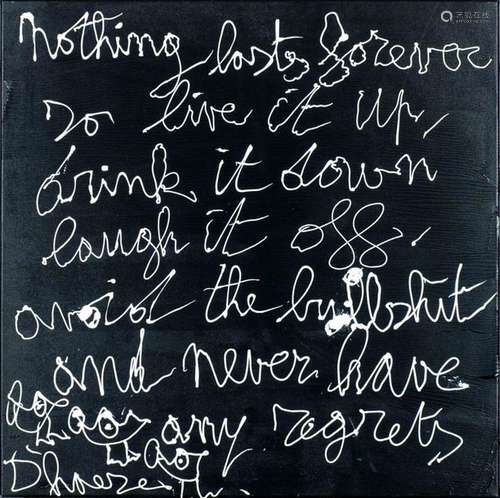 nothing lasts forever
so live it up,
drink it down
laugh it off.
avoid the bullshit
and never have
any regrets
D'hoore